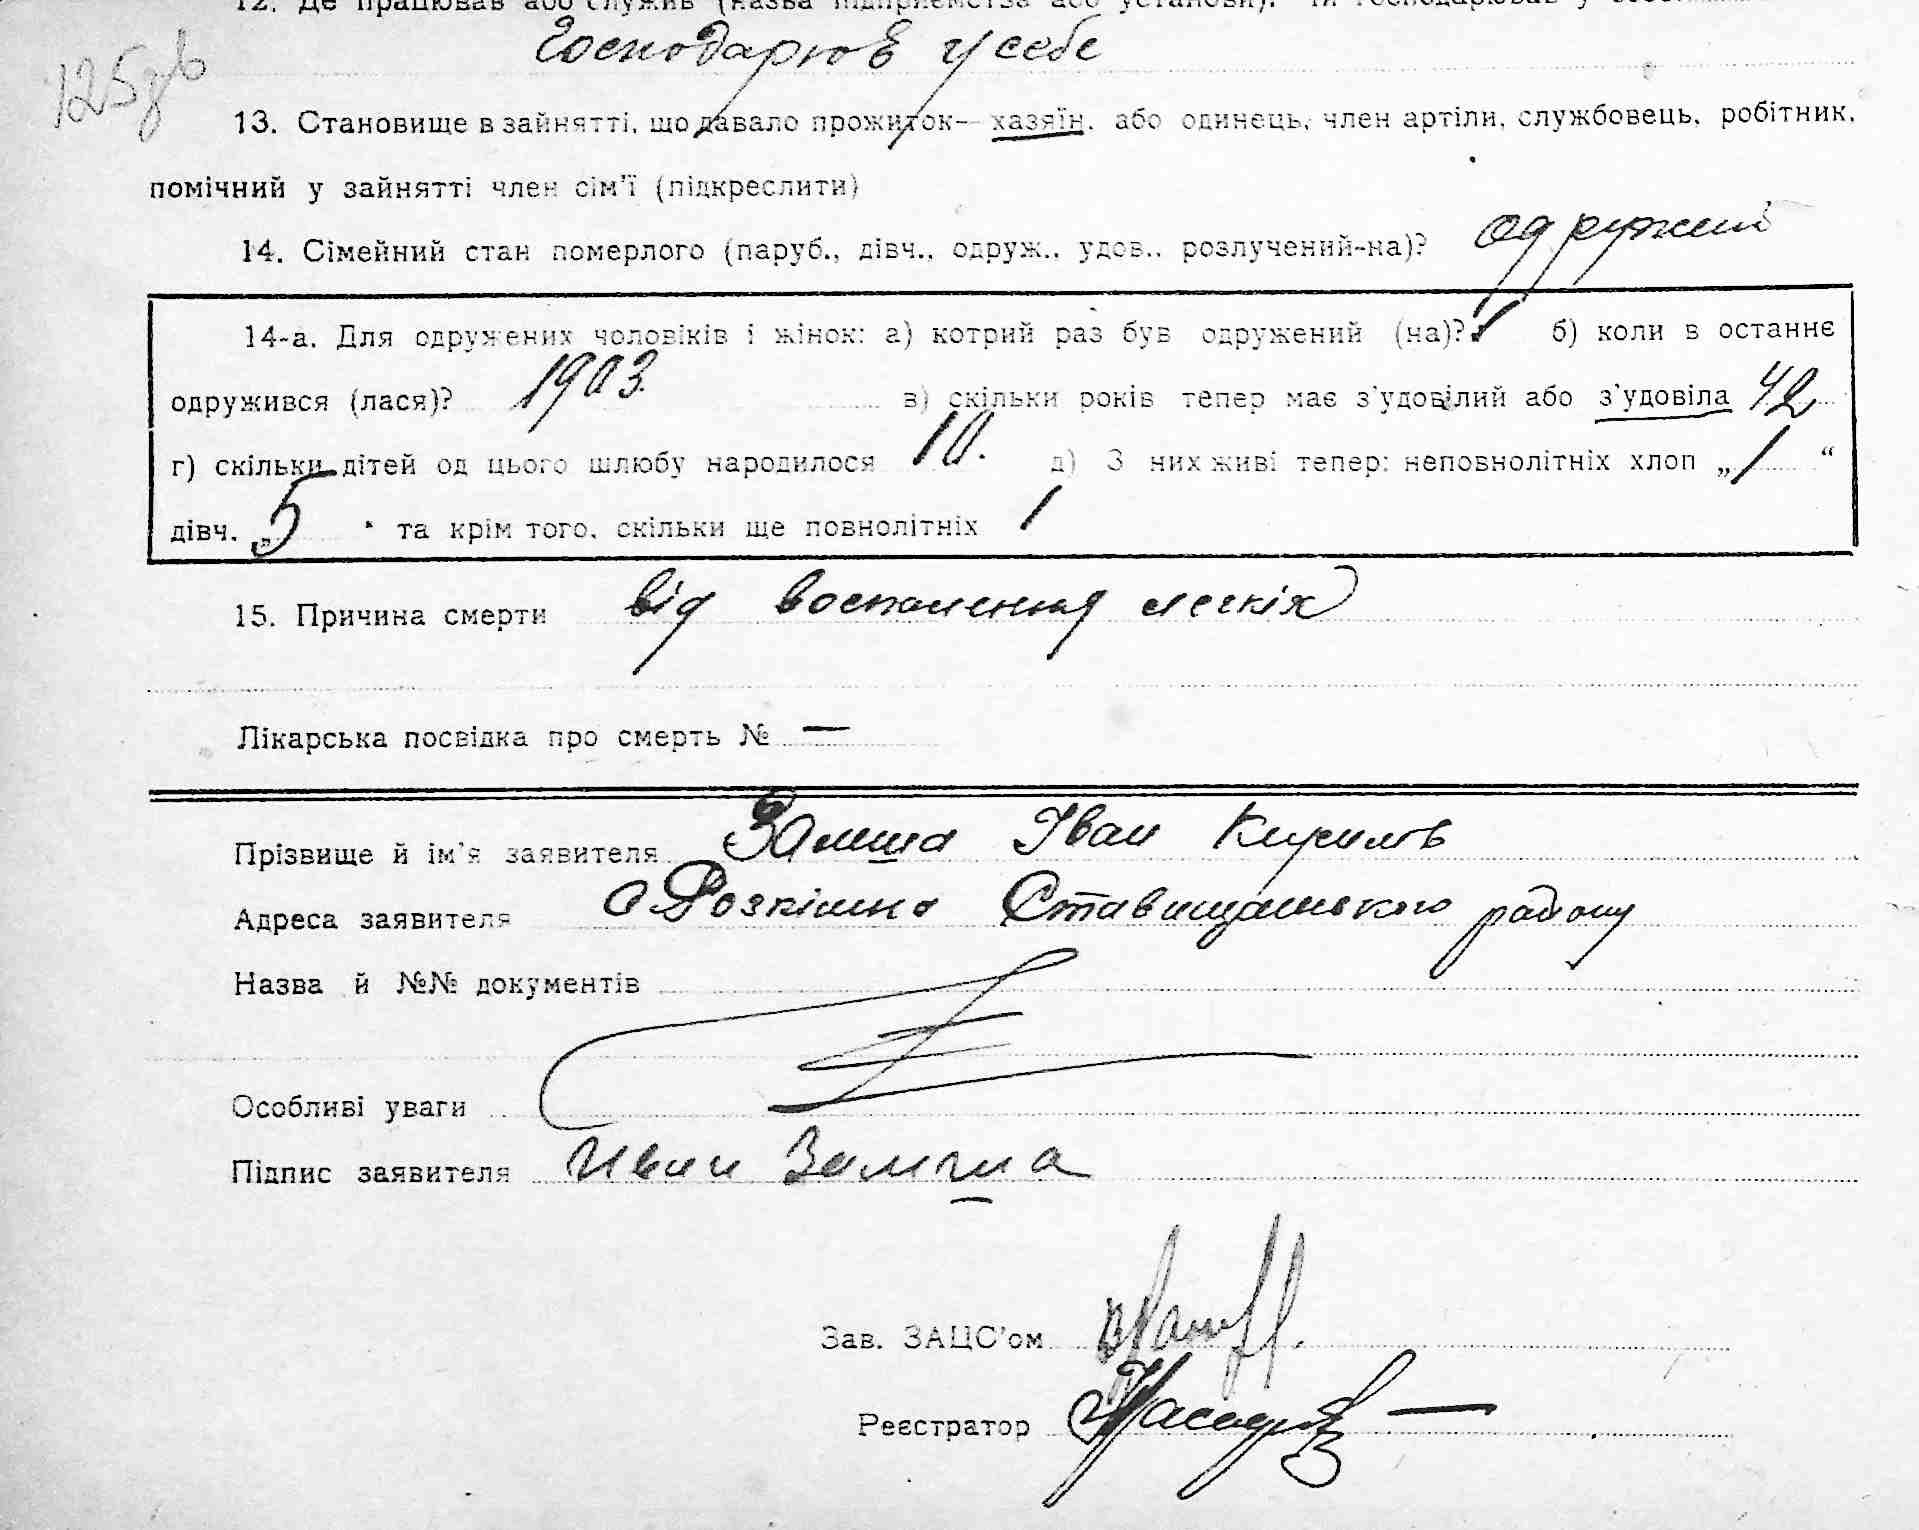 12. Де працював або служив (назва підприємства або установи). Чи господарював у себе
Господарюв у себе
125зв
13. Становище в зайнятті, що давало прожиток— хазяїн, або одинець, член артіли, службовець, робітник,
помічний у зайнятті член сім'ї (підкреслити)
14. Сімейний стан померлого (паруб., дівч., одруж., удов., розлучений-на)? одружений
14-а. Для одружених чоловіків і жінок: а) котрий раз був одружений (на)? 1 б) коли в останнє
одружився (лася)? 1903. в) скільки років тепер має з'удовілий або з'удовіла 42
г) скільки дітей од цього шлюбу народилося 10. д) З них живі тепер: неповнолітніх хлоп „1“
дівч. „5“ та крім того, скільки ще повнолітніх 1
15. Причина смерти від воспаления легкіх
Лікарська посвідка про смерть № —
Прізвище й ім'я заявителя Замша Іван Кирилів
Адреса заявителя с Розкішна Ставищанського району
Назва й №№ документів
Особливі уваги
Підпис заявителя Иван Замша
Зав. ЗАЦС'ом
Реєстратор